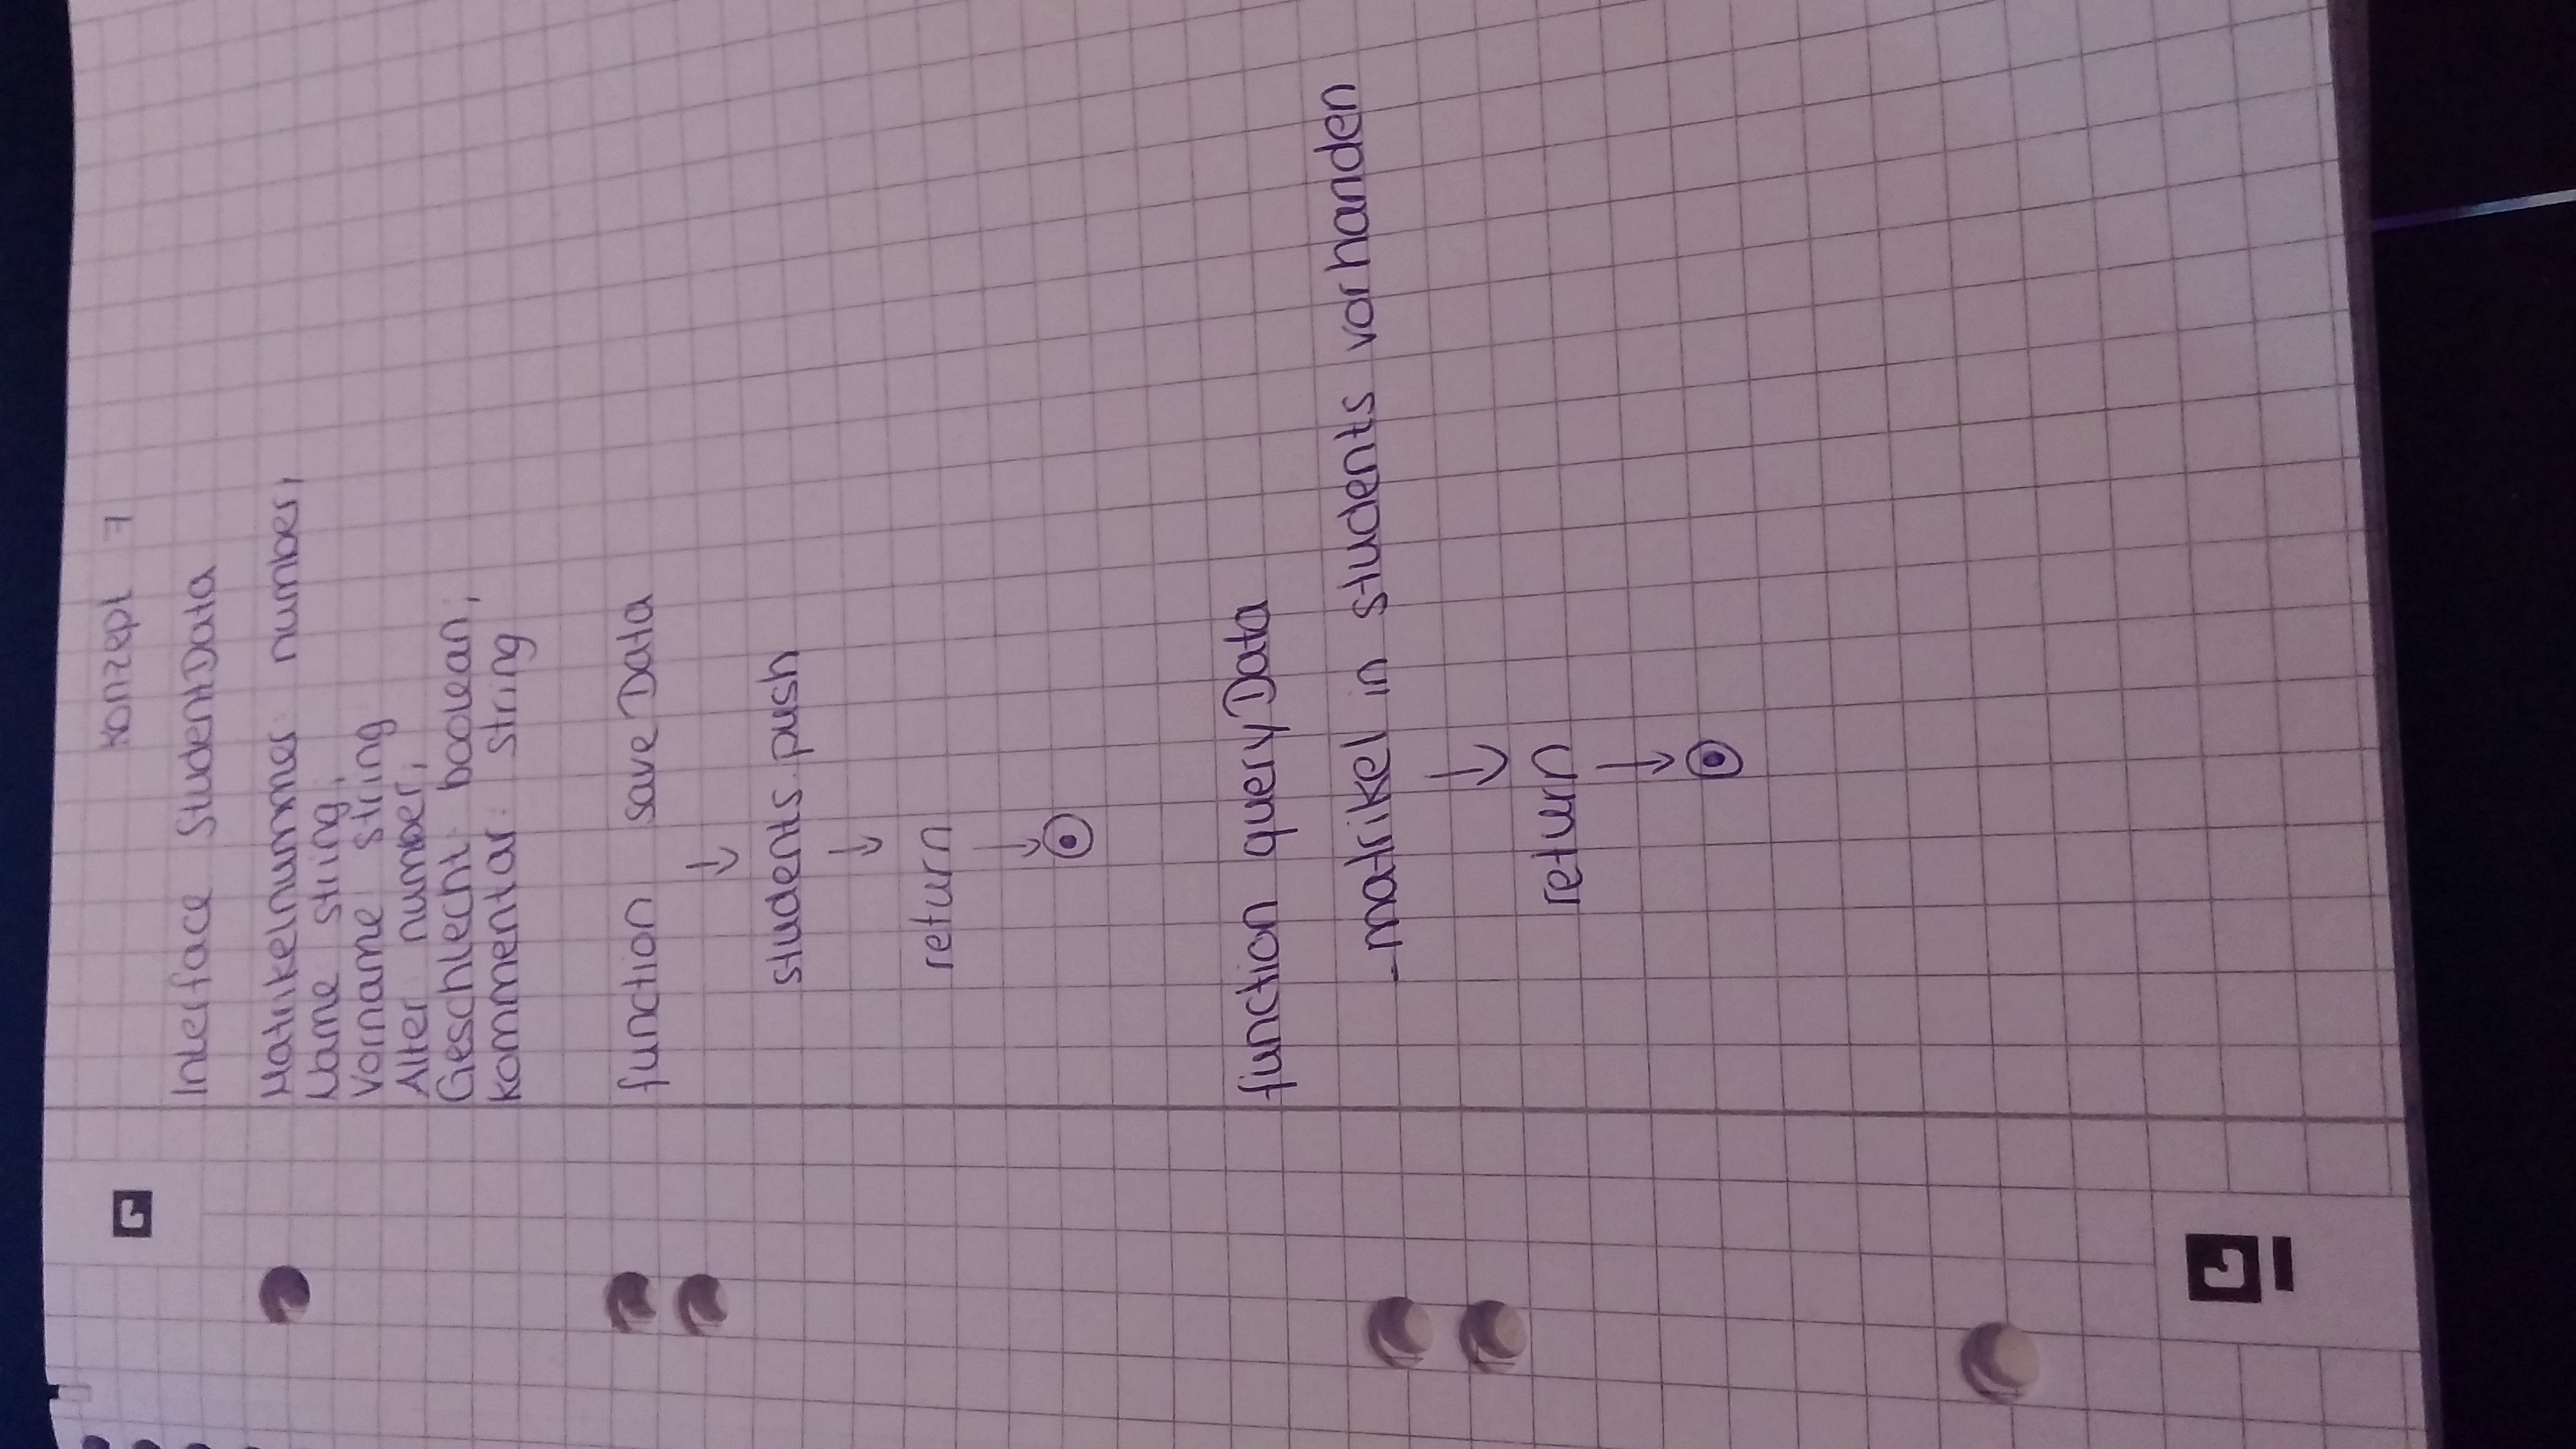 Konzept 7
Interface StudentData
Matrikelnummer number;
Name string;
Vorname string
Alter number;
Geschlecht: boolean;
Kommentar: string
function saveData
↓
students.push
↓
return
↓
function queryData
- matrikel in students vorhanden
↓
return
↓